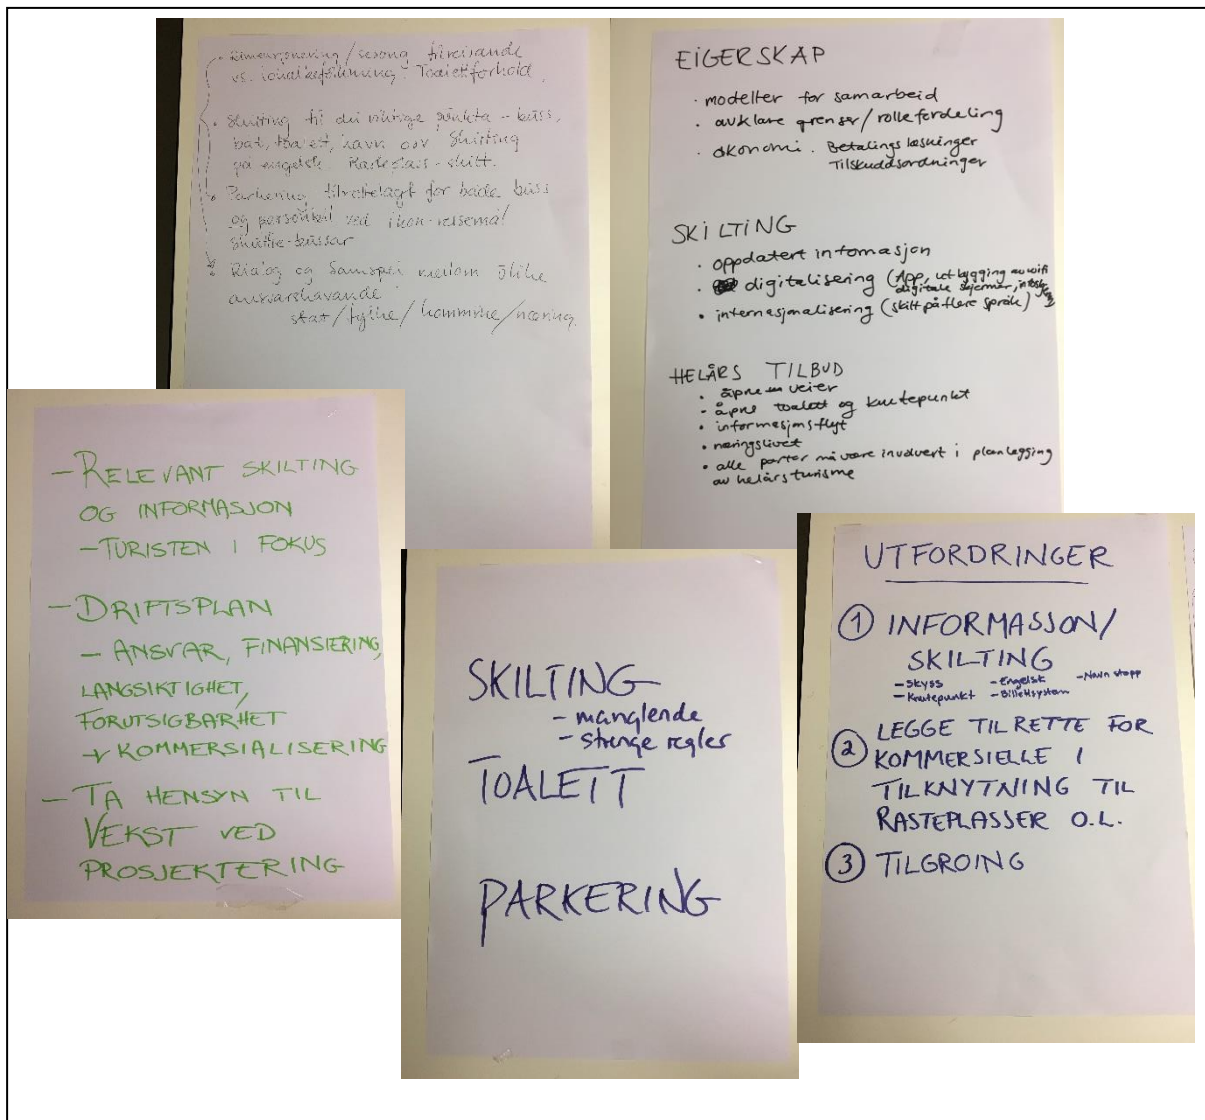 · Dimensjonering/sesong tilreisande
vs. lokalbefolkning - Toalettforhold.
· Skilting til dei viktige punkta - buss,
båt, toalett, navn osv Skilting
på engelsk. Rasteplass-skilt.
· Parkering tilrettelagt for både buss
og personbil ved ikon-reisemål
Shuttle-bussar
· Dialog og Samspel mellom ulike
ansvarshavande
stat/fylke/kommune/næring.
EIGERSKAP
· modeller for samarbeid
· avklare grenser/rollefordeling
· økonomi. Betalingsløsninger
Tilskuddsordninger
SKILTING
· oppdatert informasjon
· digitalisering (App, utbygging av wifi
digitale skjermer,
· internasjonalisering (skilt på flere språk)
HELÅRS TILBUD
· åpne veier
· åpne toalett og knutepunkt
· informasjonsflyt
· næringslivet
· alle parter må være involvert i planlegging
av helårs turisme
- RELEVANT SKILTING
OG INFORMASJON
- TURISTEN I FOKUS
- DRIFTSPLAN
- ANSVAR, FINANSIERING,
LANGSIKTIGHET,
FORUTSIGBARHET
KOMMERSIALISERING
- TA HENSYN TIL
VEKST VED
PROSJEKTERING
SKILTING
- manglende
- strenge regler
TOALETT
PARKERING
UTFORDRINGER
1 INFORMASJON/
SKILTING
- Skyss - Engelsk - Navn stopp
- Knutepunkt - Billettsystem
2 LEGGE TILRETTE FOR
KOMMERSIELLE I
TILKNYTNING TIL
RASTEPLASSER O.L.
3 TILGROING